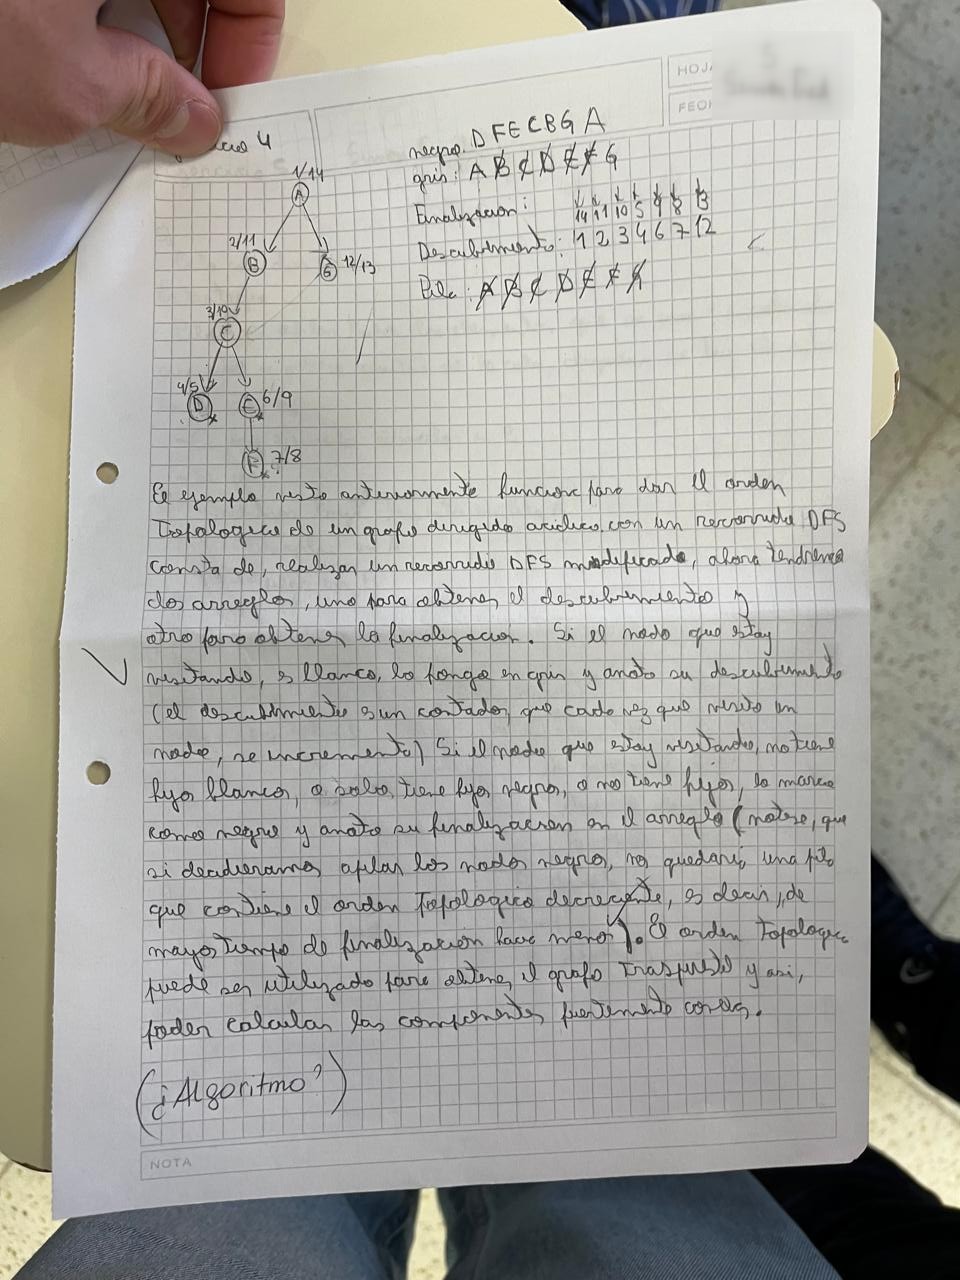 HOJA
FECH
4
negro: D F E C B G A
gris: A B C D E F G
Finalizacion: 14 11 10 5 9 8 13
Descubrimiento: 1 2 3 4 6 7 12
Pila: A B C D E F
1/14
A
2/11
B
G 12/13
3/10
C
4/5
D
E 6/9
F 7/8
El ejemplo visto anteriormente funciona para dar el orden
Topologico de un grafo dirigido aciclico, con un recorrido DFS
consta de, realizar un recorrido DFS modificado, ahora tendremos
dos arreglos, uno para obtener el descubrimiento y
otro para obtener la finalizacion. Si el nodo que estoy
visitando, es blanco, lo pongo en gris y anoto su descubrimiento
(el descubrimiento es un contador, que cada vez que visito un
nodo, se incrementa) Si el nodo que estoy visitando, no tiene
hijos blancos, o solo tiene hijos negros, o no tiene hijos, lo marco
como negro y anoto su finalizacion en el arreglo (notese, que
si decidieramos apilar los nodos negros, nos quedaria una pila
que contiene el orden topologico decreciente, es decir, de
mayor tiempo de finalizacion hacia menor). El orden topologico
puede ser utilizado para obtener el grafo traspuesto y asi,
poder calcular las componentes fuertemente conexas.
(¿Algoritmo?)
NOTA